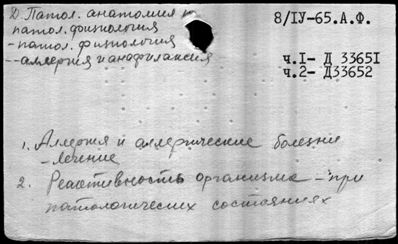 D. Патол. анатомия и
патол. физиология
- патол. физиология
-- аллергия и анафилаксия
8/IУ-65.А.Ф.
ч.1- Д 33651
ч.2- Д33652
1. Аллергия и аллергические болезни
- лечение
2. Реактивность организма - при
патологических состояниях